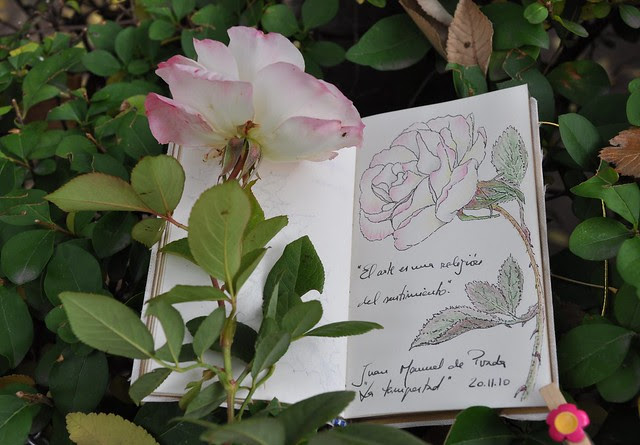 "El arte es una religión
del sentimiento".
Juan Manuel de Prada
"La tempestad" 20.11.10